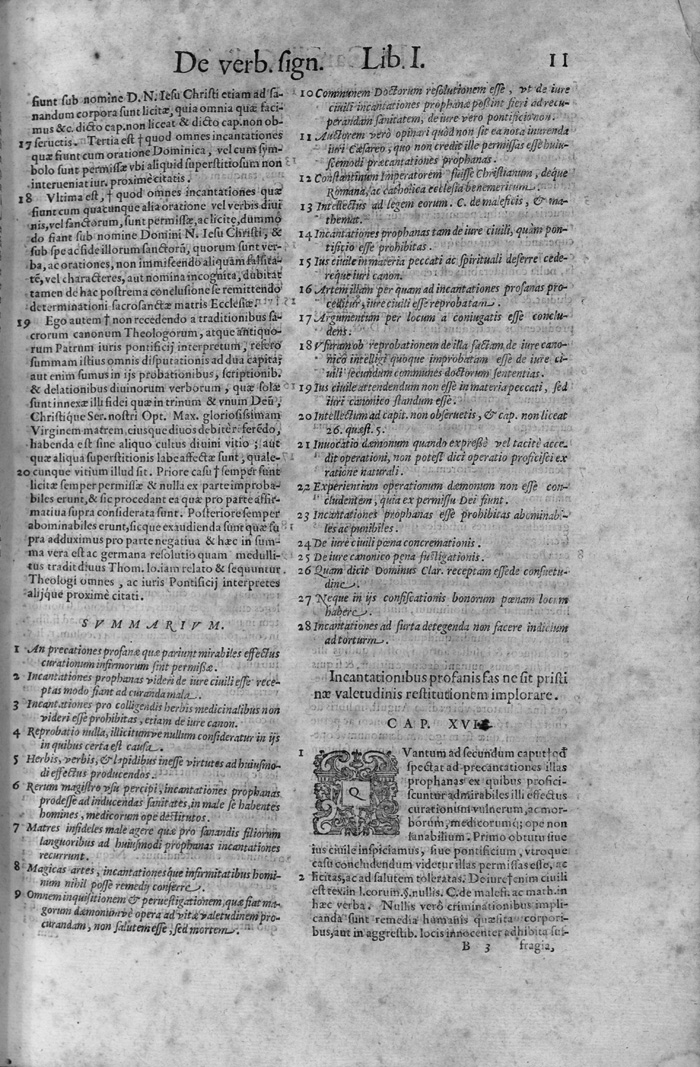 De verb. sign. Lib. I. 11
fiunt sub nomine D. N. Iesu Christi etiam ad sa-
nandum corpora sunt licitæ, quia omnia quæ faci-
mus &c. dicto cap. non liceat & dicto cap. non ob-
17 seructis. Tertia est † quod omnes incantationes
quæ fiunt cum oratione Dominica, vel cum sym-
bolo sunt permissæ vbi aliquid superstitiosum non
interueniat iur. proximè citatis.
18 Vltima est, † quod omnes incantationes quæ
fiunt cum quacunque alia oratione vel verbis diui
nis, vel sanctorum, sunt permissæ, ac licitè, dummó
do fiant sub nomine Domini N. Iesu Christi, &
sub spe ac fide illorum sanctorũ, quorum sunt ver-
ba, ac orationes, non immiscendo aliquam falsita-
tẽ, vel characteres, aut nomina incognita, dubitãt
tamen de hac postrema conclusione se remittendo
determinationi sacrosanctæ matris Ecclesiæ.
19 Ego autem † non recedendo a traditionibus sa-
crorum canonum Theologorum, atque antiquo-
rum Patrum iuris pontificij interpretum, refero
summam istius omnis disputationis ad duo capita;
aut enim sumus in ijs probationibus, scriptionib.
& delationibus diuinorum verborum, quæ solæ
sunt innexæ illi fidei quæ in trinum & vnum Deũ,
Christique Ser. nostri Opt. Max. gloriosissimam
Virginem matrem, eiusque diuos debitè: ferẽdo,
habenda est sine aliquo cultus diuini vitio; aut
quæ aliqua superstitionis labe affectæ sunt, quale-
20 cunque vitium illud sit. Priore casu † semper sunt
licitæ semper permissæ & nulla ex parte improba-
biles erunt, & sic procedant ea quæ pro parte affir-
matiua supra considerata sunt. Posteriore semper
abominabiles erunt, sicque exaudienda sunt quæ su
pra adduximus pro parte negatiua & hæc in sum-
ma vera est ac germana resolutio quam medulli-
tus tradit diuus Thom. lo. iam relato & sequuntur
Theologi omnes, ac iuris Pontificij interpretes
alijque proximè citati.
SVMMARIVM.
1 An precationes profanæ quæ pariunt mirabiles effectus
curationum infirmorum sint permissæ.
2 Incantationes prophanas videri de iure ciuili esse rece-
ptas modo fiant ad curanda mala.
3 Incantationes pro colligendis herbis medicinalibus non
videri esse prohibitas, etiam de iure canon.
4 Reprobatio nulla, illicitumve nullum consideratur in ijs
in quibus certa est causa.
5 Herbis, verbis, & lapidibus inesse virtutes ad huiusmo-
di effectus producendos.
6 Rerum magistro vsu percipi, incantationes prophanas
prodesse ad inducendas sanitates, in male se habentes
homines, medicorum ope destitutos.
7 Matres infideles male agere quæ pro sanandis filiorum
languoribus ad huiusmodi prophanas incantationes
recurrunt.
8 Magicas artes, incantationesque infirmitatibus homi-
num nihil posse remedij conferre.
9 Omnem inquisitionem & peruestigationem, quæ fiat ma-
gorum dæmonumvè opera ad vitæ valetudinem pro-
curandam, non salutem esse, sed mortem.
10 Communem Doctorum resolutionem esse, vt de iure
ciuili incantationes prophanæ possint fieri ad recu-
perandam sanitatem, de iure vero pontificio non.
11 Auctorem verò opinari quòd non sit ea nota inurenda
iuri Cæsareo, quo non credit ille permissas esse huiu-
scemodi præcantationes prophanas.
12 Constantinum Imperatorem fuisse Christianum, deque
Romana, ac catholica ecclesia benemeritum.
13 Intellectus ad legem eorum. C. de maleficis, & ma-
themat.
14 Incantationes prophanas tam de iure ciuili, quam pon-
tificio esse prohibitas.
15 Ius ciuile in materia peccati ac spirituali deferre cede-
reque iuri canon.
16 Artem illam per quam ad incantationes profanas pro-
ceditur, iure ciuili esse reprobatam.
17 Argumentum per locum a coniugatis esse conclu-
dens.
18 Vsuram ob reprobationem de illa factam, de iure cano-
nico intelligi quoque improbatam esse de iure ci-
uili secundum communes doctorum sententias.
19 Ius ciuile attendendum non esse in materia peccati, sed
iuri canonico standum esse.
20 Intellectum ad capit. non obseruetis, & cap. non liceat
26. quæst. 5.
21 Inuocatio dæmonum quando expressè vel tacitè acce-
dit operationi, non potest dici operatio proficisci ex
ratione naturali.
22 Experientiam operationum dæmonum non esse con-
cludentem, quia ex permissu Dei fiunt.
23 Incantationes prophanas esse prohibitas abominabi-
les ac punibiles.
24 De iure ciuili pœna concremationis.
25 De iure canonico pena fustigationis.
26 Quam dicit Dominus Clar. receptam esse de consuetu-
dine.
27 Neque in ijs confiscationis bonorum pœnam locum
habere.
28 Incantationes ad furta detegenda non facere indicium
ad torturam.
Incantationibus profanis fas ne sit pristi
næ valetudinis restitutionem implorare.
CAP. XVI
1 QVantum ad secundum caput † qđ
spectat ad precantationes illas
prophanas ex quibus profici-
scuntur admirabiles illi effectus
curationum vulnerum, ac mor-
borum, medicorumq; ope non
sanabilium. Primo obtutu siue
ius ciuile inspiciamus, siue pontificium, vtroque
casu concludendum videtur illas permissas esse, ac
2 licitas, ac ad salutem toleratas. De iur † enim ciuili
est tex. in l. eorum. §. nullis. C. de malefi. ac math. in
hæc verba. Nullis verò criminationibus impli-
canda sunt remedia humanis quæsita corpori-
bus, aut in aggrestib. locis innocenter adhibita suf-
B 3 fragia,